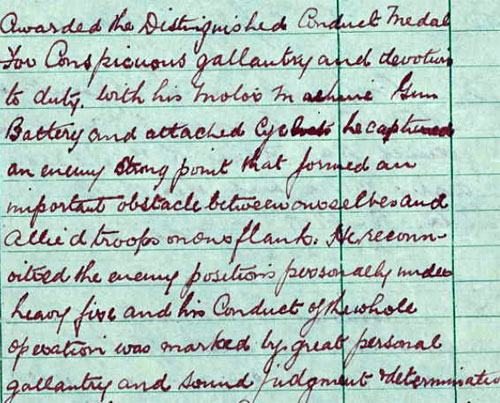 Awarded the Distinguished Conduct Medal
For Conspicuous gallantry and devotion
to duty. With his Motor Machine Gun
Battery and attached Cyclists he captured
an enemy strong point that formed an
important obstacle between ourselves and
Allied troops on our flank. He reconn-
oitred the enemy positions personally under
heavy fire and his Conduct of the whole
operation was marked by great personal
gallantry and sound judgment & determinatio